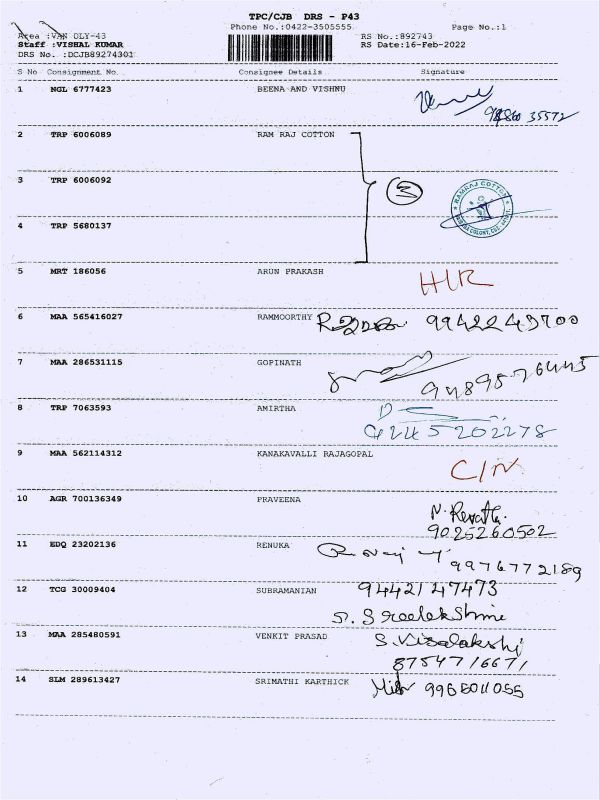 TPC/CJB DRS - P43
Phone No.:0422-3505555 Page No.:1
Area :VAN DLY-43 RS No.:892743
Staff :VISHAL KUMAR RS Date:16-Feb-2022
DRS No. :DCJB89274301
S No Consignment No. Consignee Details Signature
1 NGL 6777423 BEENA AND VISHNU
2 TRP 6006089 RAM RAJ COTTON
3 TRP 6006092 3
RAMRAJ COTTON
4 TRP 5680137
5 MRT 186056 ARUN PRAKASH
6 MAA 565416027 RAMMOORTHY 9942249700
7 MAA 286531115 GOPINATH
9489576445
8 TRP 7063593 AMIRTHA
9245202278
9 MAA 562114312 KANAKAVALLI RAJAGOPAL
C/N
10 AGR 700136349 PRAVEENA
N. Revathi
9025260502
11 EDQ 23202136 RENUKA
9976772189
12 TCG 30009404 SUBRAMANIAN 9442147473
S. Sreelakshmi
13 MAA 285480591 VENKIT PRASAD S. Visalakshi
8754716671
14 SLM 289613427 SRIMATHI KARTHICK 9965011055